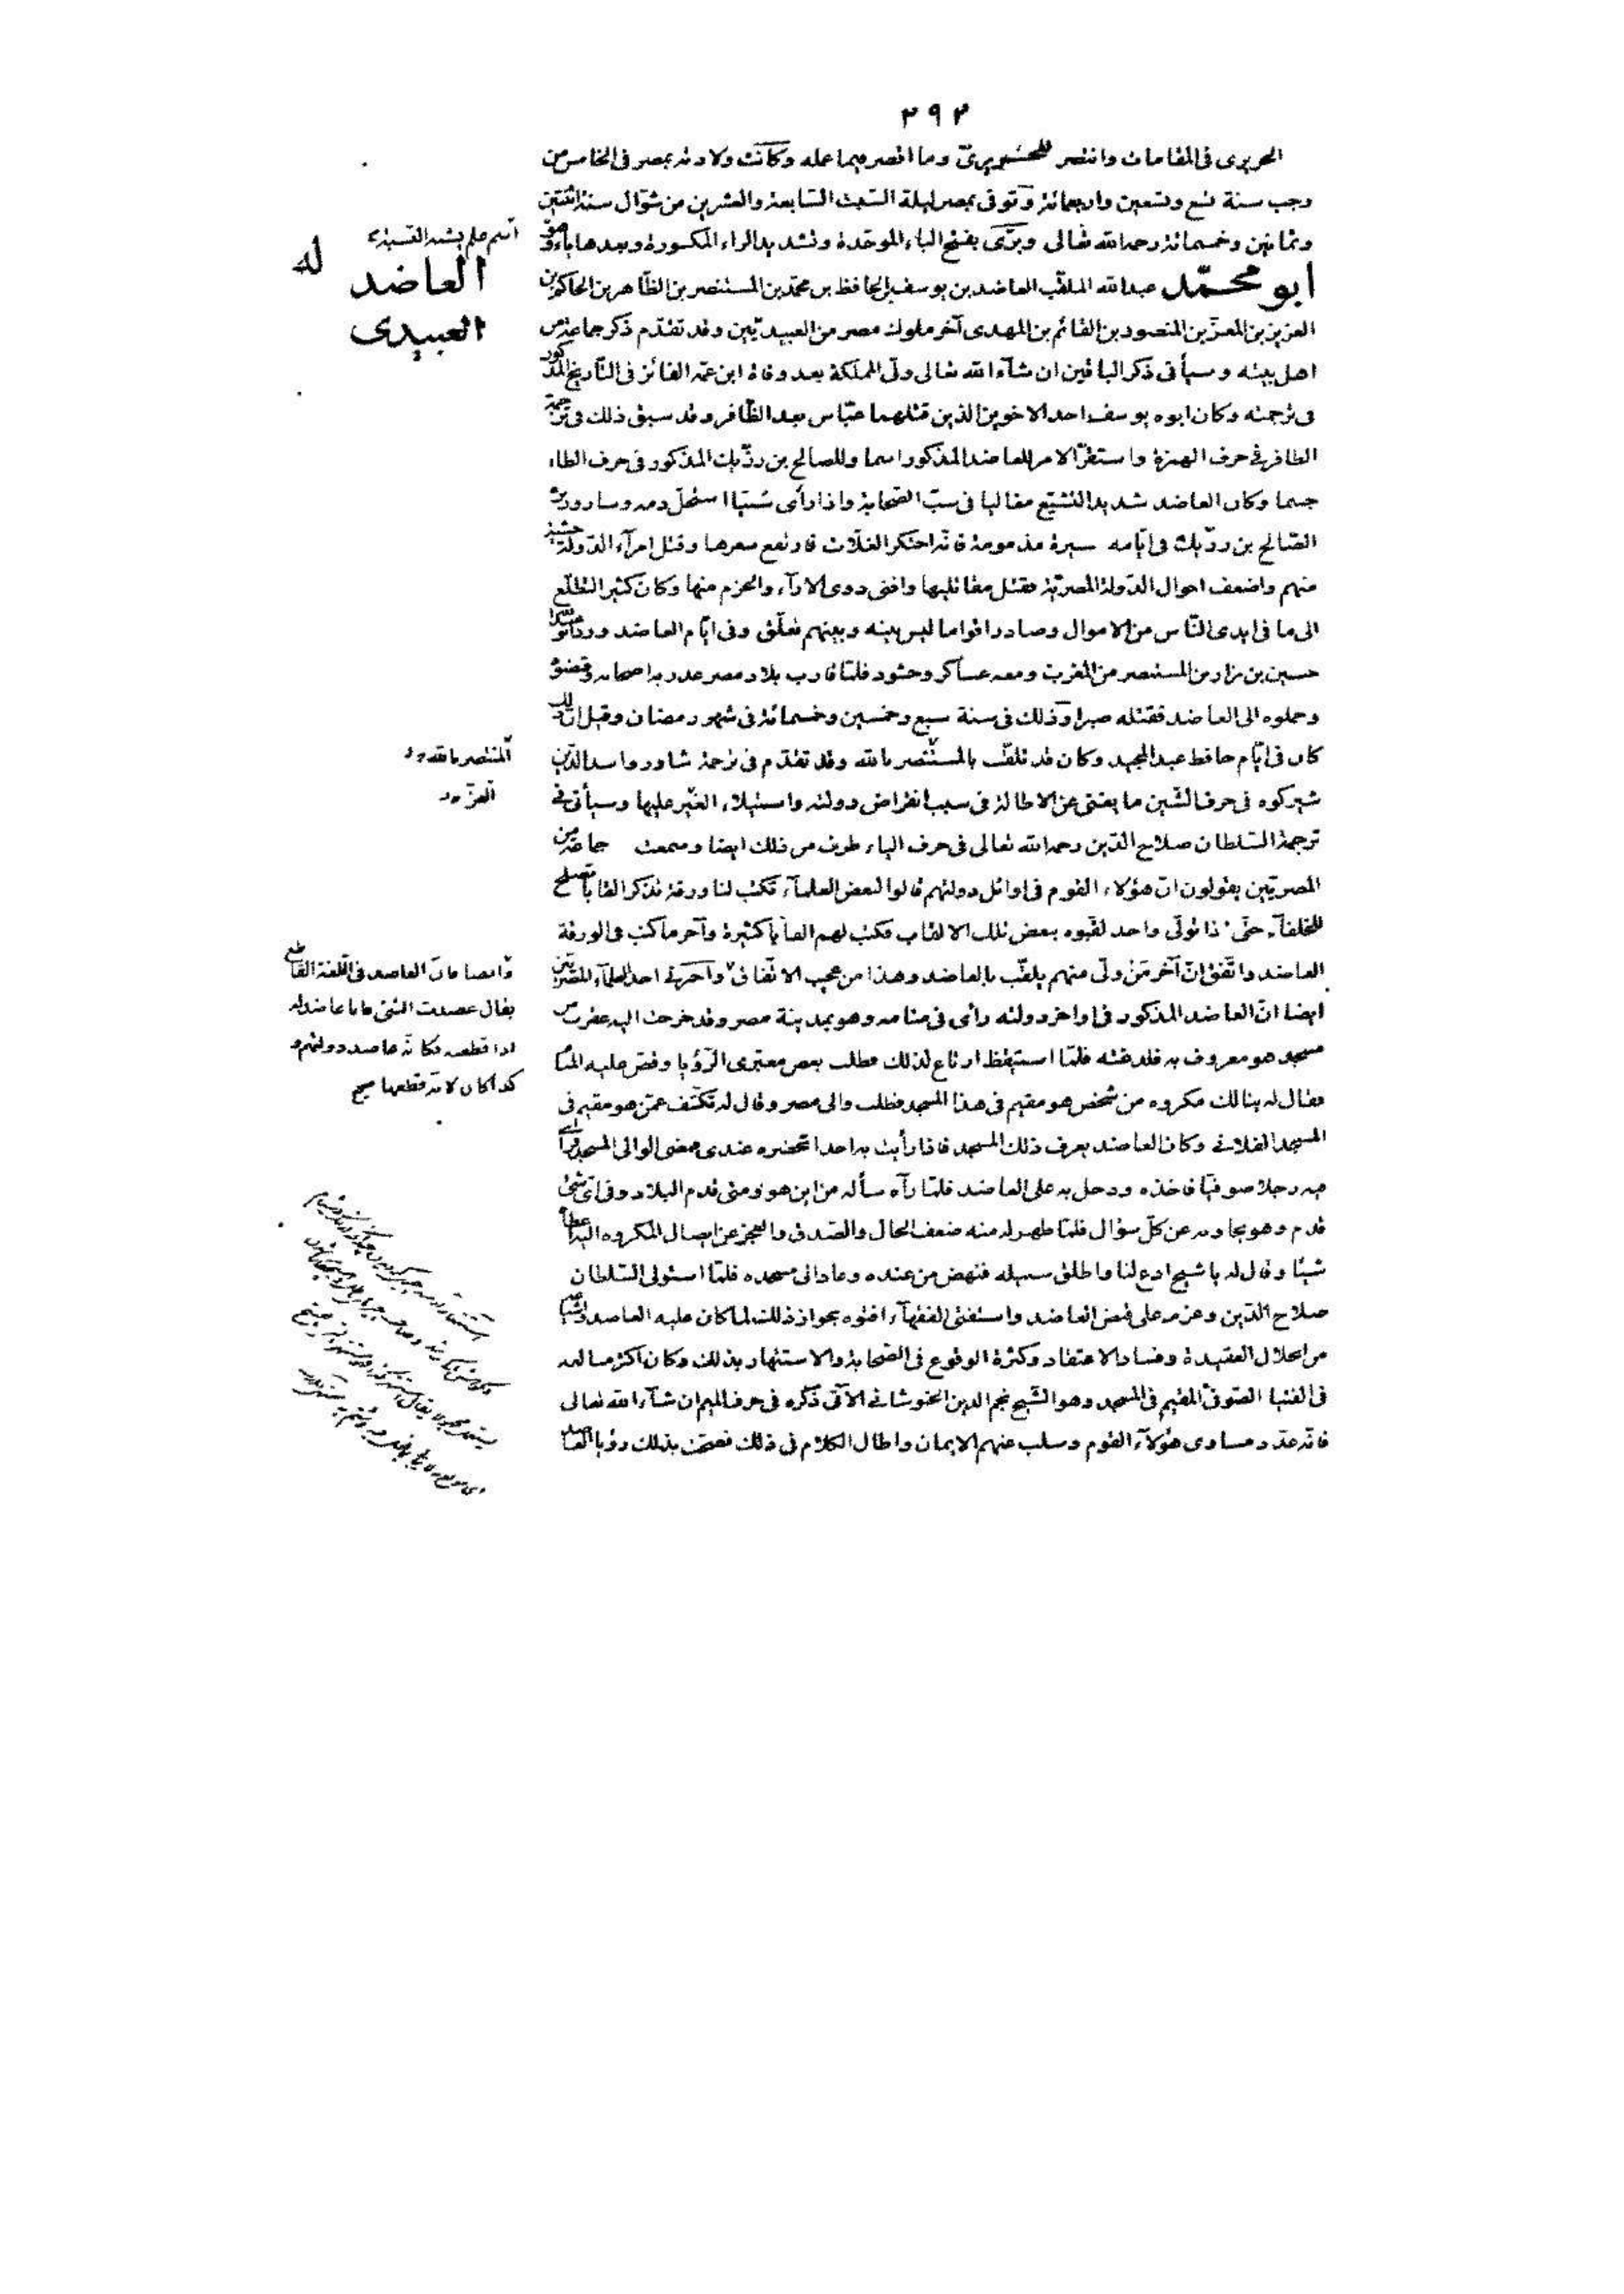 ٢٩٢
الحريرى فى المقامات وانتصر للحريرىّ وما اقصر فيما عمله وكانت ولادته بمصر فى الخامس من
رجب سنة تسع وتسعين واربعمائة وتوفى بمصر ليلة السّبت السّابعة والعشرين من شوّال سنة اثنتين
وثمانين وخمسمائة رحمه الله تعالى وبرّى بفتح الباء الموحّدة وتشديد الراء المكسورة وبعدها ياء وهو
اسم علم يشبه النّسبة
العاضد
العبيدى
ابو محمّد عبد الله الملقّب العاضد بن يوسف بن الحافظ بن محمّد بن المستنصر بن الظّاهر بن الحاكم بن
العزيز بن المعزّ بن المنصور بن القائم بن المهدى آخر ملوك مصر من العبيديّين وقد تقدّم ذكر جماعة من
اهل بيته وسيأتى ذكر الباقين ان شآء الله تعالى ولّى المملكة بعد وفاة ابن عمّه الفائز فى التّاريخ المذكور
فى ترجمته وكان ابوه يوسف احد الاخوين الذين قتلهما عبّاس بعد الظّافر وقد سبق ذلك فى ترجمة
الظافر فى حرف الهمزة واستقرّ الامر للعاضد المذكور اسما وللصالح بن رزّيك المذكور فى حرف الطاء
جسما وكان العاضد شديد التشيّع مغاليا فى سبّ الصّحابة واذا رأى سنّيّا استحلّ دمه وسار وزيره
الصّالح بن رزّيك فى ايّامه سيرة مذمومة فانّه احتكر الغلّات فارتفع سعرها وقتل امرآء الدّولة خشية
منهم واضعف احوال الدّولة المصريّة فقتل مقاتليها وافنى ذوى الارآء والحزم منها وكان كثير التطلّع
الى ما فى ايدى النّاس من الاموال وصادر اقواما ليس بينه وبينهم تعلّق وفى ايّام العاضد ورد ابو عبد الله
حسين بن نزار بن المستنصر من المغرب ومعه عساكر وحشود فلمّا قارب بلاد مصر غدر به اصحابه وقبضوه
وحملوه الى العاضد فقتله صبرا وذلك فى سنة سبع وخمسين وخمسمائة فى شهر رمضان وقيل ان ذلك
كان فى ايّام حافظ عبد المجيد وكان قد تلقّب بالمستنصر بالله وقد تقدّم فى ترجمة شاور واسد الدّين
المنتصر بالله
شيركوه فى حرف الشّين ما يغنى عن الاطالة فى سبب انقراض دولته واستيلاء الغيّر عليها وسيأتى فى
ترجمة السّلطان صلاح الدّين رحمه الله تعالى فى حرف الياء طرف من ذلك ايضا وسمعت جماعة من
المصريّين يقولون انّ هؤلاء القوم فى اوائل دولتهم قالوا لبعض العلمآء تكتب لنا ورقة تذكر القابا تصلح
للخلفآء حتّى اذا تولّى واحد لقّبوه ببعض تلك الالقاب فكتب لهم القابا كثيرة وآخر ما كتب فى الورقة
العاضد واتّفق انّ آخر من ولّى منهم يلقّب بالعاضد وهذا من عجيب الاتّفاق واخبرنى احد العلمآء المصريّين
وايضا فانّ العاضد فى اللغة القاطع
يقال عضدت الشئ فانا عاضد له
اذا قطعته فكانّه عاضد دولتهم و
كذا كان لانّه قطعها صح
ايضا انّ العاضد المذكور فى اواخر دولته رأى فى منامه وهو بمدينة مصر وقد خرجت اليه عقرب من
مسجد هو معروف به فلدغته فلمّا استيقظ ارتاع لذلك فطلب بعض معتبرى الرّؤيا وقصّ عليه المنام
فقال له ينالك مكروه من شخص هو مقيم فى هذا المسجد فطلب والى مصر وقال له تكشف عمّن هو مقيم فى
المسجد الفلانى وكان العاضد يعرف ذلك المسجد فاذا رأيت به احدا تحضره عندى فمضى الوالى المسجد فرأى
فيه رجلا صوفيّا فاخذه ودخل به على العاضد فلمّا رآه سأله من اين هو ومتى قدم البلاد وفى اىّ شئ
قدم وهو يجاوبه عن كلّ سؤال فلمّا ظهر له منه ضعف الحال والصّدق والعجز عن ايصال المكروه اليه اعطاه
شيئا وقال له يا شيخ ادع لنا واطلق سبيله فنهض من عنده وعاد الى مسجده فلمّا استولى السّلطان
صلاح الدّين وعزم على قبض العاضد واستفتى الفقهآء افتوه بجواز ذلك لما كان عليه العاضد واشياعه
من انحلال العقيدة وفساد الاعتقاد وكثرة الوقوع فى الصّحابة والاستهتار بذلك وكان اكثرهم مبالغة
فى الفتيا الصّوفىّ المقيم فى المسجد وهو الشّيخ نجم الدين الخبوشانى الآتى ذكره فى حرف الميم ان شآء الله تعالى
فانّه عدّد مساوى هؤلآء القوم وسلب عنهم الايمان واطال الكلام فى ذلك فصحّت بذلك رؤيا العاضد